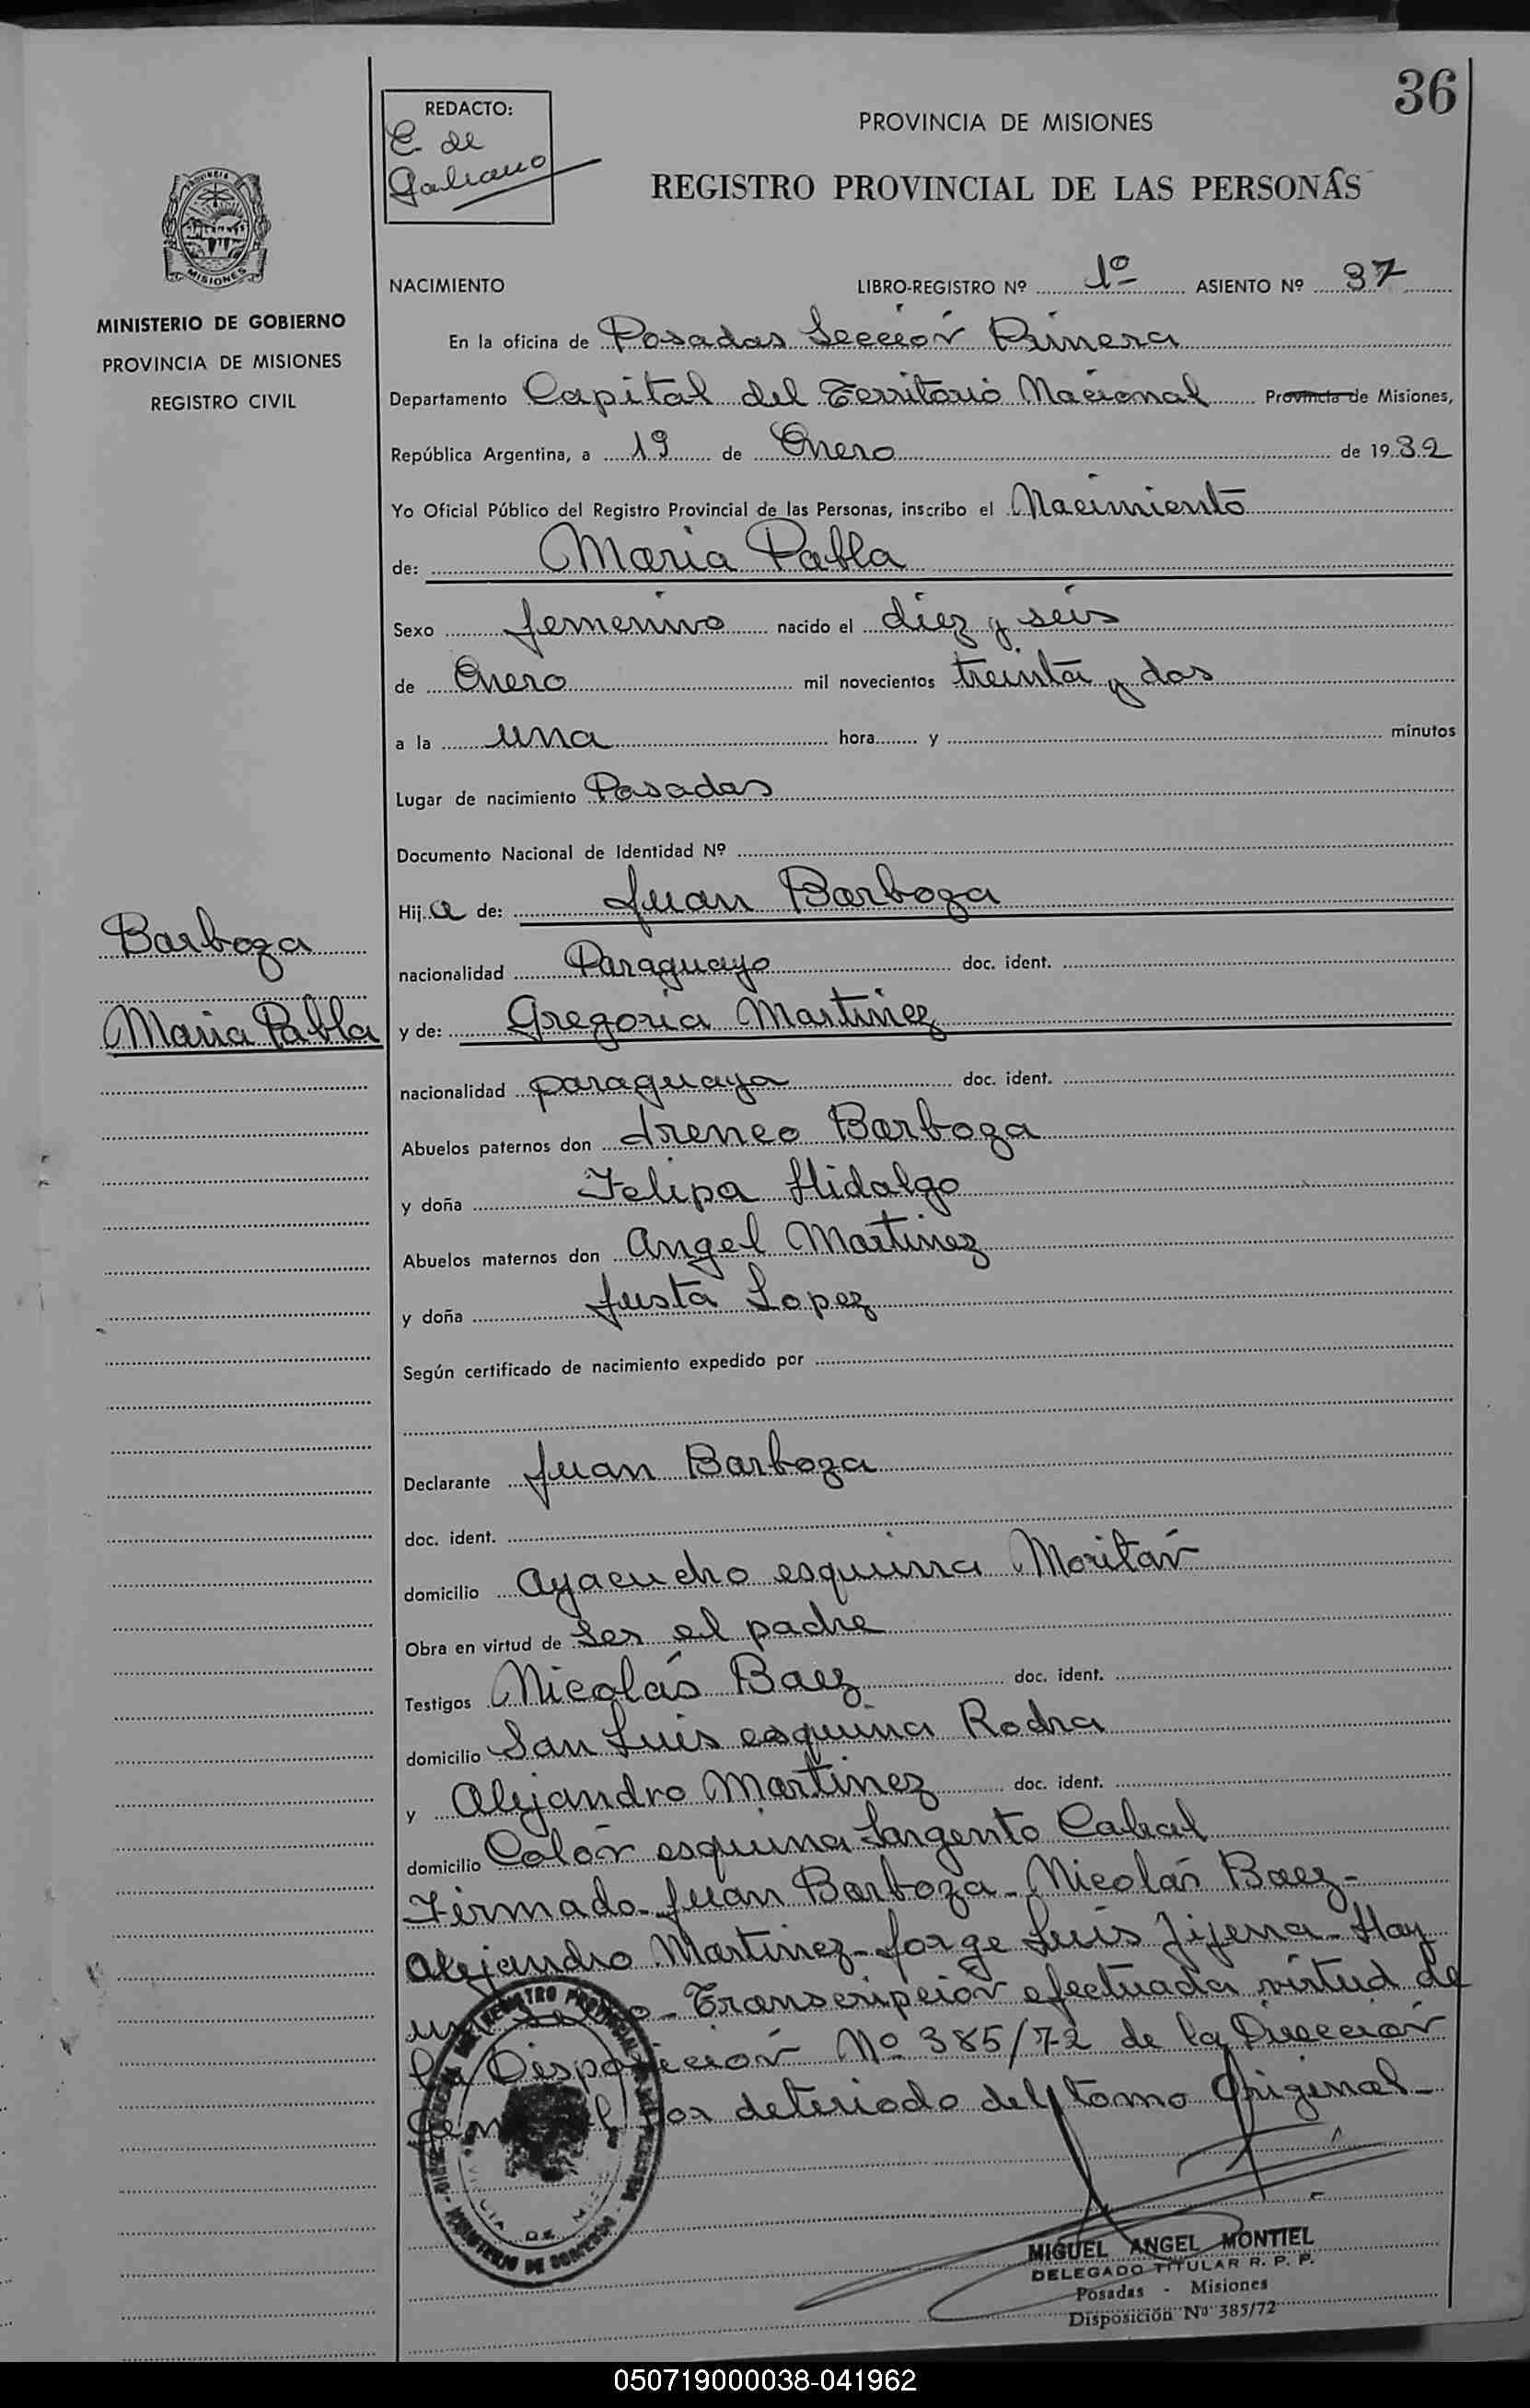 36
REDACTO:
E. de
Galeano
PROVINCIA DE MISIONES
REGISTRO PROVINCIAL DE LAS PERSONAS
PROVINCIA
MISIONES
MINISTERIO DE GOBIERNO
PROVINCIA DE MISIONES
REGISTRO CIVIL
NACIMIENTO LIBRO-REGISTRO Nº 1º ASIENTO Nº 37
En la oficina de Posadas Sección Primera
Departamento Capital del Territorio Nacional Provincia de Misiones,
República Argentina, a 19 de Enero de 1932
Yo Oficial Público del Registro Provincial de las Personas, inscribo el Nacimiento
de: Maria Pabla
Sexo femenino nacido el diez y seis
de Enero mil novecientos treinta y dos
a la una hora y minutos
Lugar de nacimiento Posadas
Documento Nacional de Identidad Nº
Hija de: Juan Barboza
nacionalidad Paraguayo doc. ident.
Barboza
Maria Pabla
y de: Gregoria Martinez
nacionalidad paraguaya doc. ident.
Abuelos paternos don Ireneo Barboza
y doña Felipa Hidalgo
Abuelos maternos don Angel Martinez
y doña Justa Lopez
Según certificado de nacimiento expedido por
Declarante Juan Barboza
doc. ident.
domicilio Ayacucho esquina Moritán
Obra en virtud de Ser el padre
Testigos Nicolás Baez doc. ident.
domicilio San Luis esquina Rodra
y Alejandro Martinez doc. ident.
domicilio Colón esquina Sargento Cabral
Firmado. Juan Barboza - Nicolás Baez -
Alejandro Martinez - Jorge Luis Jijena - Hay
un sello - Transcripción efectuada virtud de
la Disposición Nº 385/72 de la Dirección
General por deteriodo del tomo Original -
MIGUEL ANGEL MONTIEL
DELEGADO TITULAR R. P. P.
Posadas - Misiones
Disposición Nº 385/72
050719000038-041962